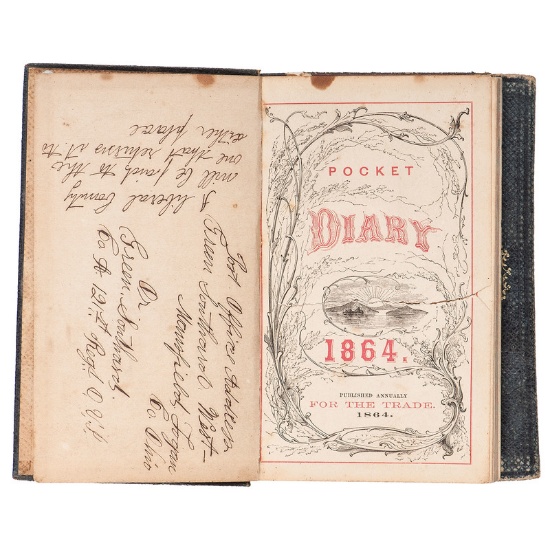 Post Office Address
Green Southard West
Mansfield Logan
Co. Ohio
Or
Green Southard,
Co A 121st Regt O V I
A liberal bounty
will be paid to the
one that returns it to
either place
POCKET
DIARY
1864.
PUBLISHED ANNUALLY
FOR THE TRADE.
1864.